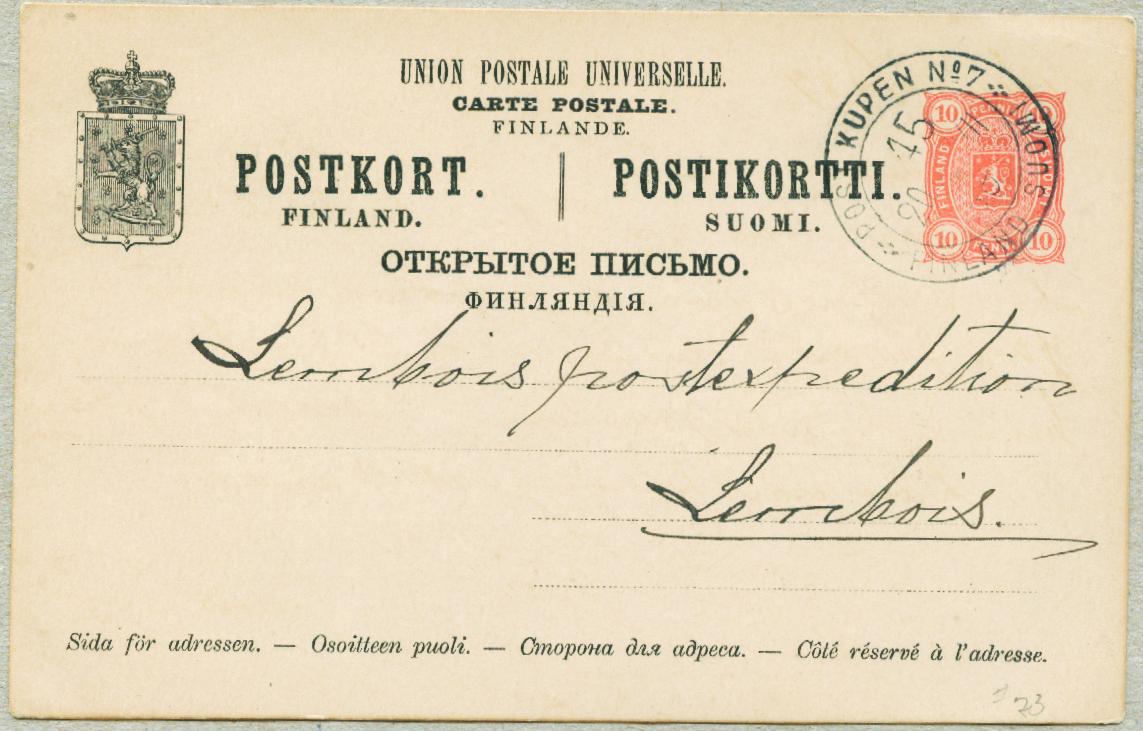 UNION POSTALE UNIVERSELLE.
CARTE POSTALE.
FINLANDE.
POSTKORT. | POSTIKORTTI.
FINLAND. SUOMI.
ОТКРЫТОЕ ПИСЬМО.
ФИНЛЯНДІЯ.
POS KUPEN No 7 SUOMI FINLAND
15
20
10 10
FINLAND
10 PENNI 10
Lembois postexpedition
Lembois.
Sida för adressen. — Osoitteen puoli. — Сторона для адреса. — Côté réservé à l'adresse.
23